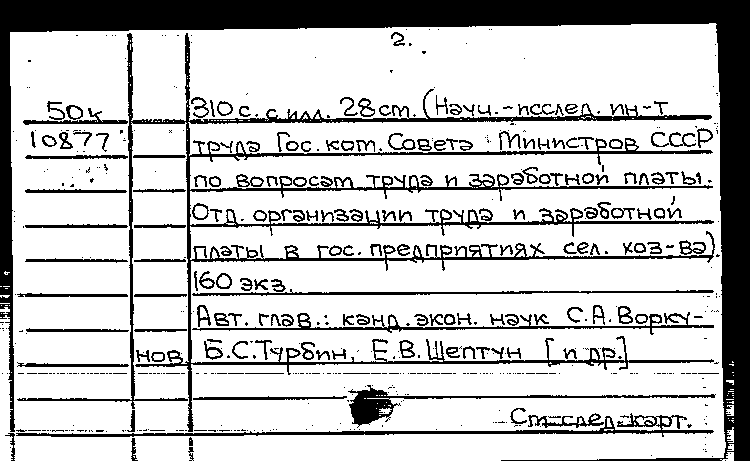 2.
50к 310 с. с илл. 28 см. (Науч.-исслед. ин-т
10877 труда Гос. ком. Совета Министров СССР
по вопросам труда и заработной платы.
Отд. организации труда и заработной
платы в гос. предприятиях сел. хоз-ва)
160 экз.
Авт. глав.: канд. экон. наук С.А. Ворку-
нов Б.С. Турбин, Е.В. Шептун [и др.]
См. след. карт.